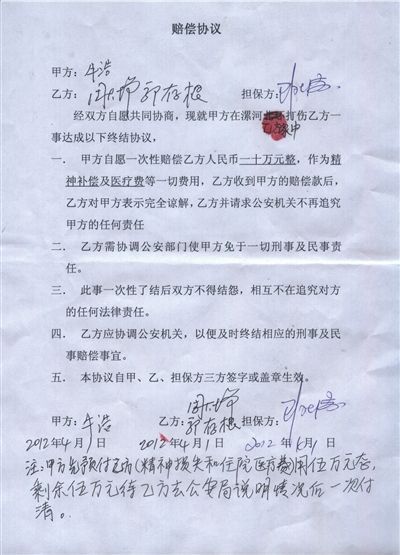 赔偿协议
甲方：牛浩
乙方： 郭存根 担保方：
经双方自愿共同协商，现就甲方在漯河北环打伤乙方一
乙方家中
事达成以下终结协议，
一． 甲方自愿一次性赔偿乙方人民币一十万元整，作为精
神补偿及医疗费等一切费用，乙方收到甲方的赔偿款后，
乙方对甲方表示完全谅解，乙方并请求公安机关不再追究
甲方的任何责任
二． 乙方需协调公安部门使甲方免于一切刑事及民事责
任。
三． 此事一次性了结后双方不得结怨，相互不在追究对方
的任何法律责任。
四． 乙方应协调公安机关，以便及时终结相应的刑事及民
事赔偿事宜。
五． 本协议自甲、乙、担保方三方签字或盖章生效。
甲方：牛浩 乙方： 郭存根 担保方：
2012年4月1日 2012年4月1日 2012年4月1日
注：甲方先预付乙方（精神损失和住院医疗费）用伍万元整，
剩余伍万元待乙方去公安局说明情况后一次付
清。